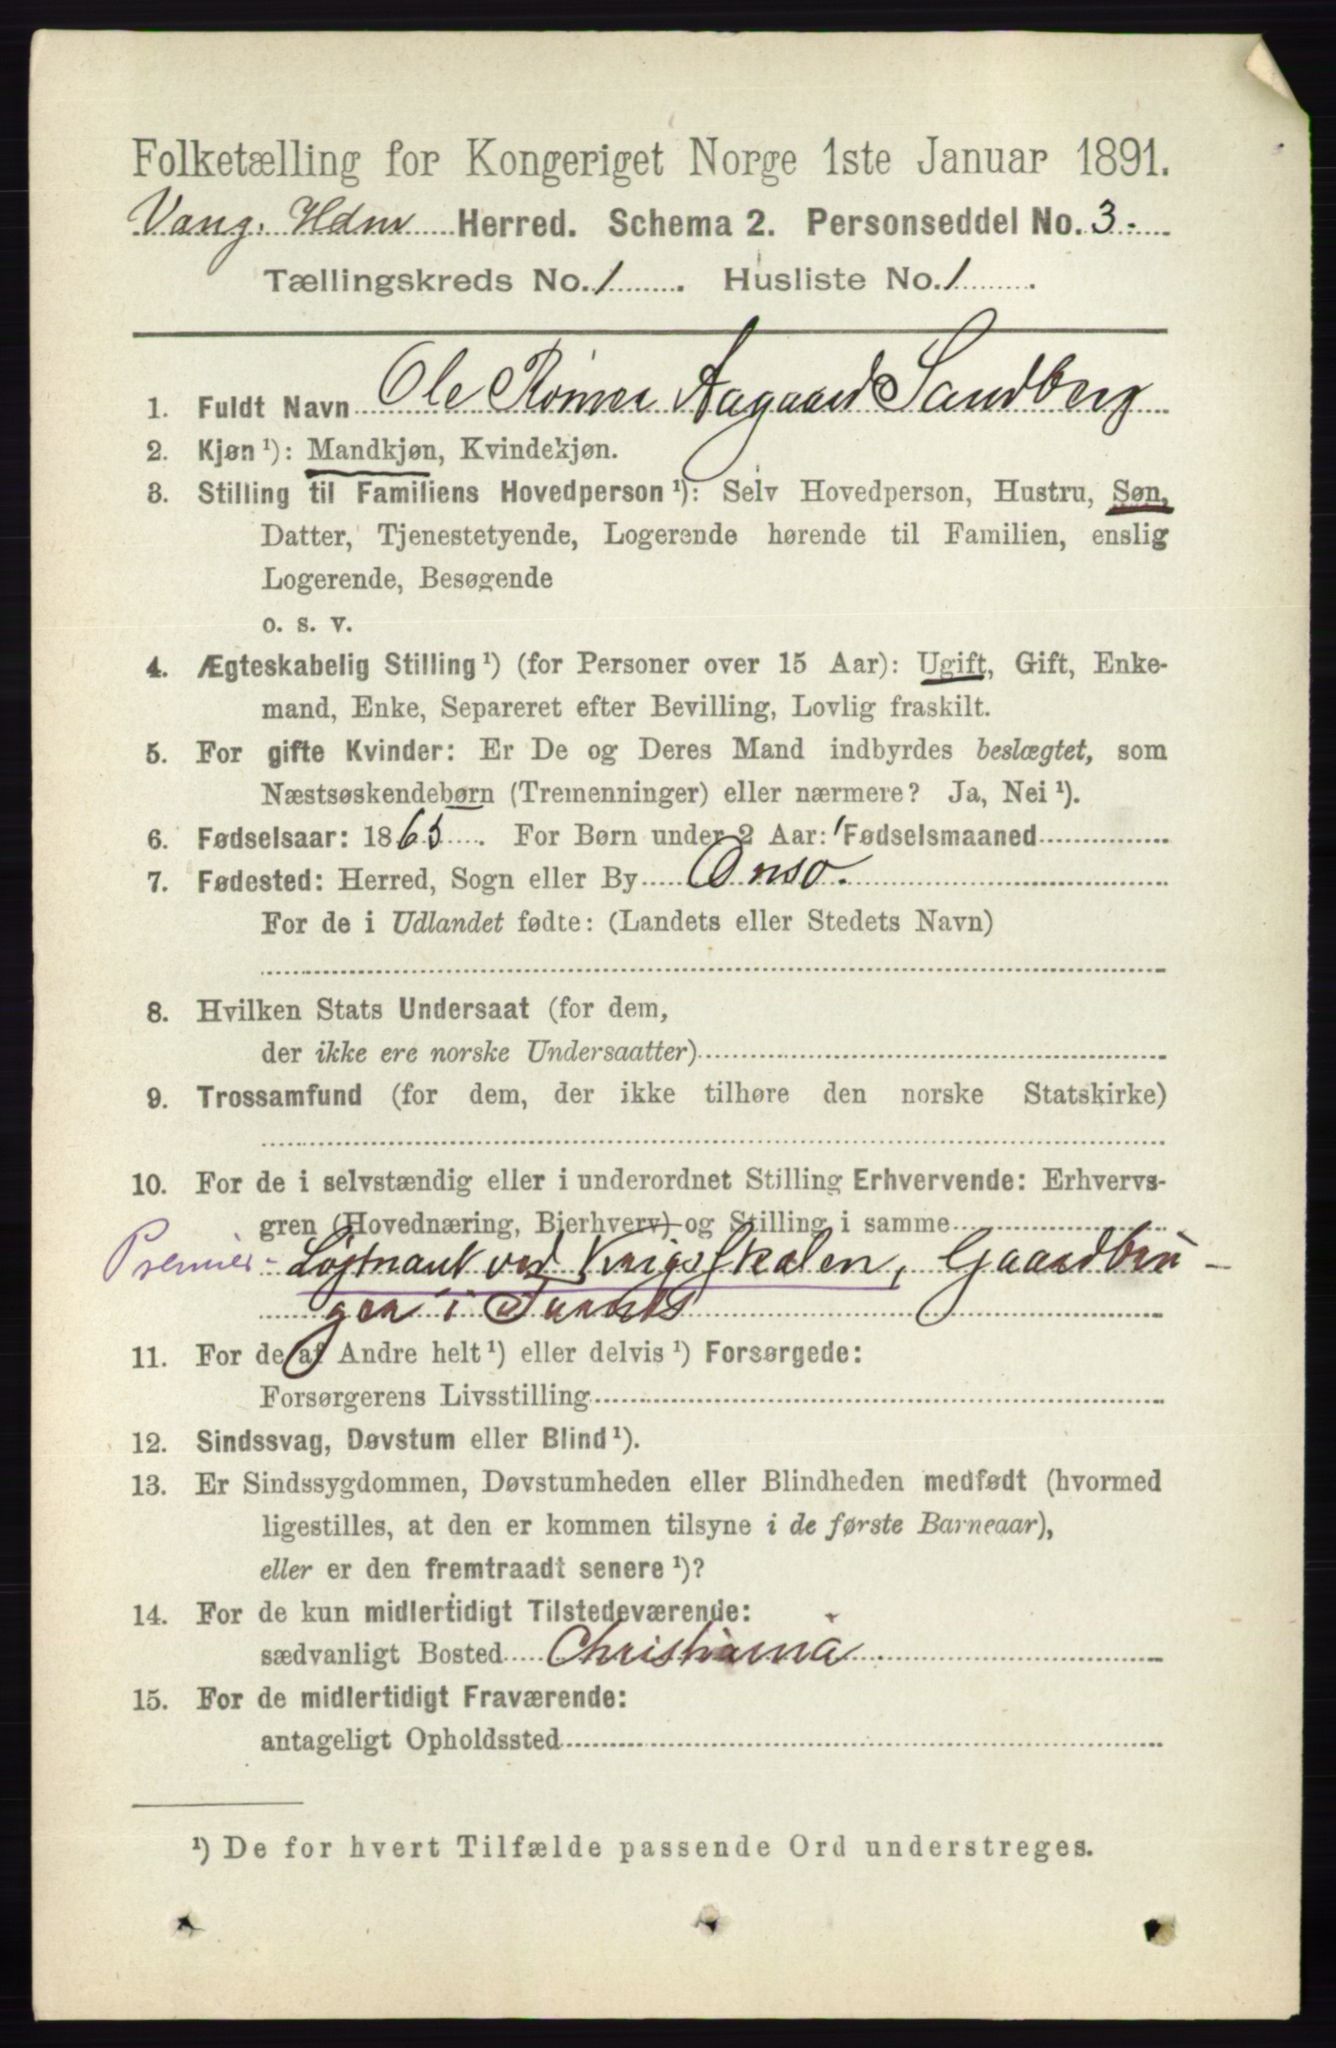 Folketælling for Kongeriget Norge 1ste Januar 1891.
Vang. Hdm Herred. Schema 2. Personseddel No. 3.
Tællingskreds No. 1. Husliste No. 1.
1. Fuldt Navn Ole Rømer Aagaard Sandberg
2. Kjøn ¹): Mandkjøn, Kvindekjøn.
3. Stilling til Familiens Hovedperson ¹): Selv Hovedperson, Hustru, Søn,
Datter, Tjenestetyende, Logerende hørende til Familien, enslig
Logerende, Besøgende
o. s. v.
4. Ægteskabelig Stilling ¹) (for Personer over 15 Aar): Ugift, Gift, Enke-
mand, Enke, Separeret efter Bevilling, Lovlig fraskilt.
5. For gifte Kvinder: Er De og Deres Mand indbyrdes beslægtet, som
Næstsøskendebørn (Tremenninger) eller nærmere? Ja, Nei ¹).
6. Fødselsaar: 1865. For Børn under 2 Aar: Fødselsmaaned
7. Fødested: Herred, Sogn eller By Onsø.
For de i Udlandet fødte: (Landets eller Stedets Navn)
8. Hvilken Stats Undersaat (for dem,
der ikke ere norske Undersaatter)
9. Trossamfund (for dem, der ikke tilhøre den norske Statskirke)
10. For de i selvstændig eller i underordnet Stilling Erhvervende: Erhvervs-
gren (Hovednæring, Bierhverv) og Stilling i samme
Premier- Løjtnant ved Krigsskolen, Gaardbru-
ger i Furnes
11. For de af Andre helt ¹) eller delvis ¹) Forsørgede:
Forsørgerens Livsstilling
12. Sindssvag, Døvstum eller Blind ¹).
13. Er Sindssygdommen, Døvstumheden eller Blindheden medfødt (hvormed
ligestilles, at den er kommen tilsyne i de første Barneaar),
eller er den fremtraadt senere ¹)?
14. For de kun midlertidigt Tilstedeværende:
sædvanligt Bosted Christiania
15. For de midlertidigt Fraværende:
antageligt Opholdssted
¹) De for hvert Tilfælde passende Ord understreges.